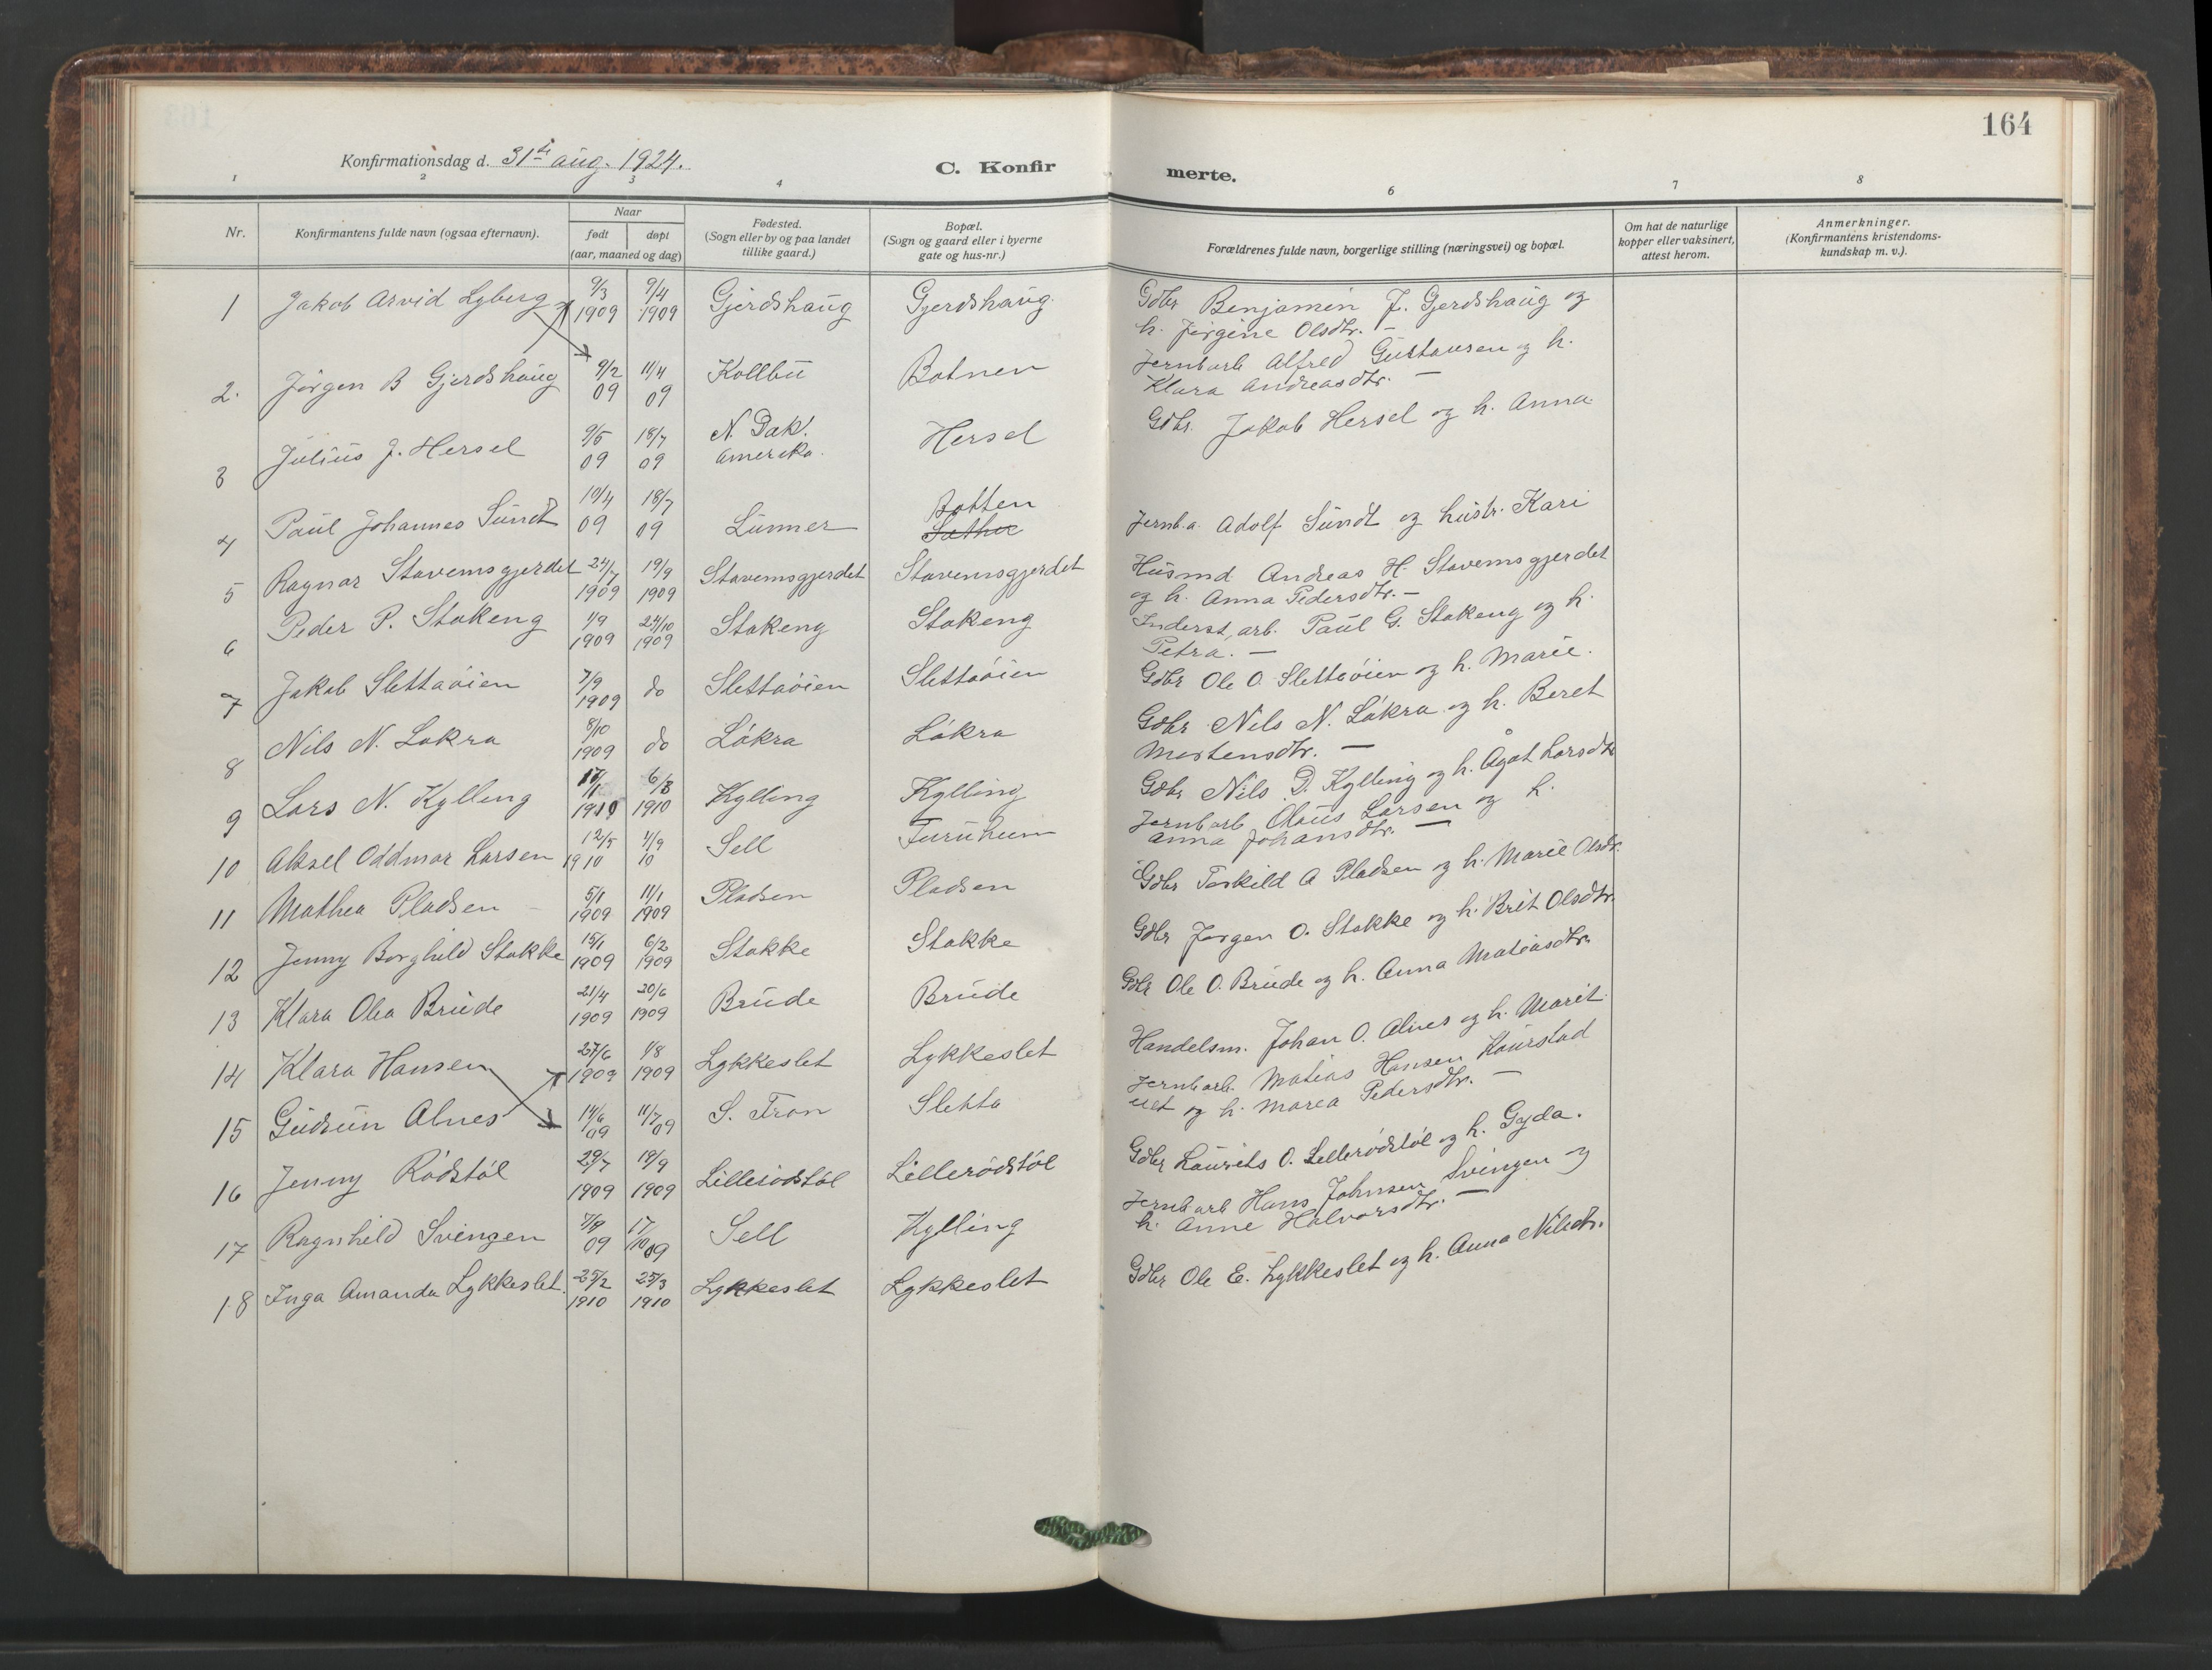 164
Konfirmationsdag d. 31te aug. 1924.
C. Konfirmerte.
1 2 3 4 6 7 8
Nr.
Konfirmantens fulde navn (ogsaa efternavn).
Naar
født døpt
(aar, maaned og dag)
Fødested.
(Sogn eller by og paa landet
tillike gaard.)
Bopæl.
(Sogn og gaard eller i byerne
gate og hus-nr.)
Forældrenes fulde navn, borgerlige stilling (næringsvei) og bopæl.
Om hat de naturlige
kopper eller vaksinert,
attest herom.
Anmerkninger.
(Konfirmantens kristendoms-
kundskap m. v.).
1 Jakob Arvid Lyberg 9/3 1909 9/4 1909 Gjerdshaug Gjerdshaug Gdbr Benjamin J. Gjerdshaug og
h. Jørgine Olsdtr. –
2. Jørgen B Gjerdshaug 9/2 09 11/4 09 Kollbu Botnen Jernbarb Alfred Gustavsen og h.
Klara Andreasdtr. –
3 Julius J. Hersel 9/5 09 18/7 09 N. Dak. Amerika. Hersel Gdbr. Jakob Hersel og h. Anna.
4 Paul Johannes Sundt 10/4 09 18/7 09 Lunner Botten Sæther Jernb.a. Adolf Sundt og hustr. Kari
5 Ragnar Stavemsgjerdet 24/7 1909 19/9 1909 Stavemsgjerdet Stavemsgjerdet Husmd. Andreas H. Stavemsgjerdet
og h. Anna Pedersdtr. –
6 Peder P. Stokeng 1/9 1909 24/10 1909 Stokeng Stokeng Inderst, arb. Paul G. Stokeng og h.
Petra. –
7 Jakob Slettaøien 7/9 1909 do Slettaøien Slettaøien Gdbr Ole O. Slettaøien og h. Marie.
8 Nils N. Løkra 8/10 1909 do Løkra Løkra Gdbr. Nils N. Løkra og h. Beret
Mortensdtr. –
9 Lars N. Kylling 17/1 1910 6/3 1910 Kylling Kylling Gdbr Nils D. Kylling og h. Ågot Larsdtr
10 Aksel Oddmar Larsen 12/5 1910 4/9 10 Sell Furuheim Jernbarb Olaus Larsen og h.
Anna Johansdtr. –
11 Mathea Pladsen – 5/1 1909 11/1 1909 Pladsen Pladsen Gdbr Torkild A Pladsen og h. Marie Olsdr.
12 Jenny Borghild Stokke 15/1 1909 6/2 1909 Stokke Stokke Gdbr Jørgen O. Stokke og h. Brit Olsdtr.
13 Klara Olea Brude 21/4 1909 20/6 1909 Brude Brude Gdbr Ole O. Brude og h. Anna Matiasdtr.
14 Klara Hansen 27/6 1909 1/8 1909 Lykkeslet Lykkeslet Handelsm. Johan O. Alnes og h. Marit.
15 Gudrun Alnes 14/6 09 11/7 09 S. Fron Sletta Jernbarb. Matias Hansen Kaurstad
og h. Marea Pedersdtr. –
16 Jenny Rødstøl 29/7 1909 19/9 1909 Lillerødstøl Lillerødstøl Gdbr Laurits O. Lillerødstøl og h. Gyda.
17 Ragnhild Svingen 7/9 09 17/10 09 Sell Kylling Jernbarb Hans Johnsen Svingen og
h. Anne Halvorsdtr. –
18 Inga Amanda Lykkeslet. 25/2 1910 25/3 1910 Lykkeslet Lykkeslet Gdbr Ole E. Lykkeslet og h. Anna Nilsdtr.